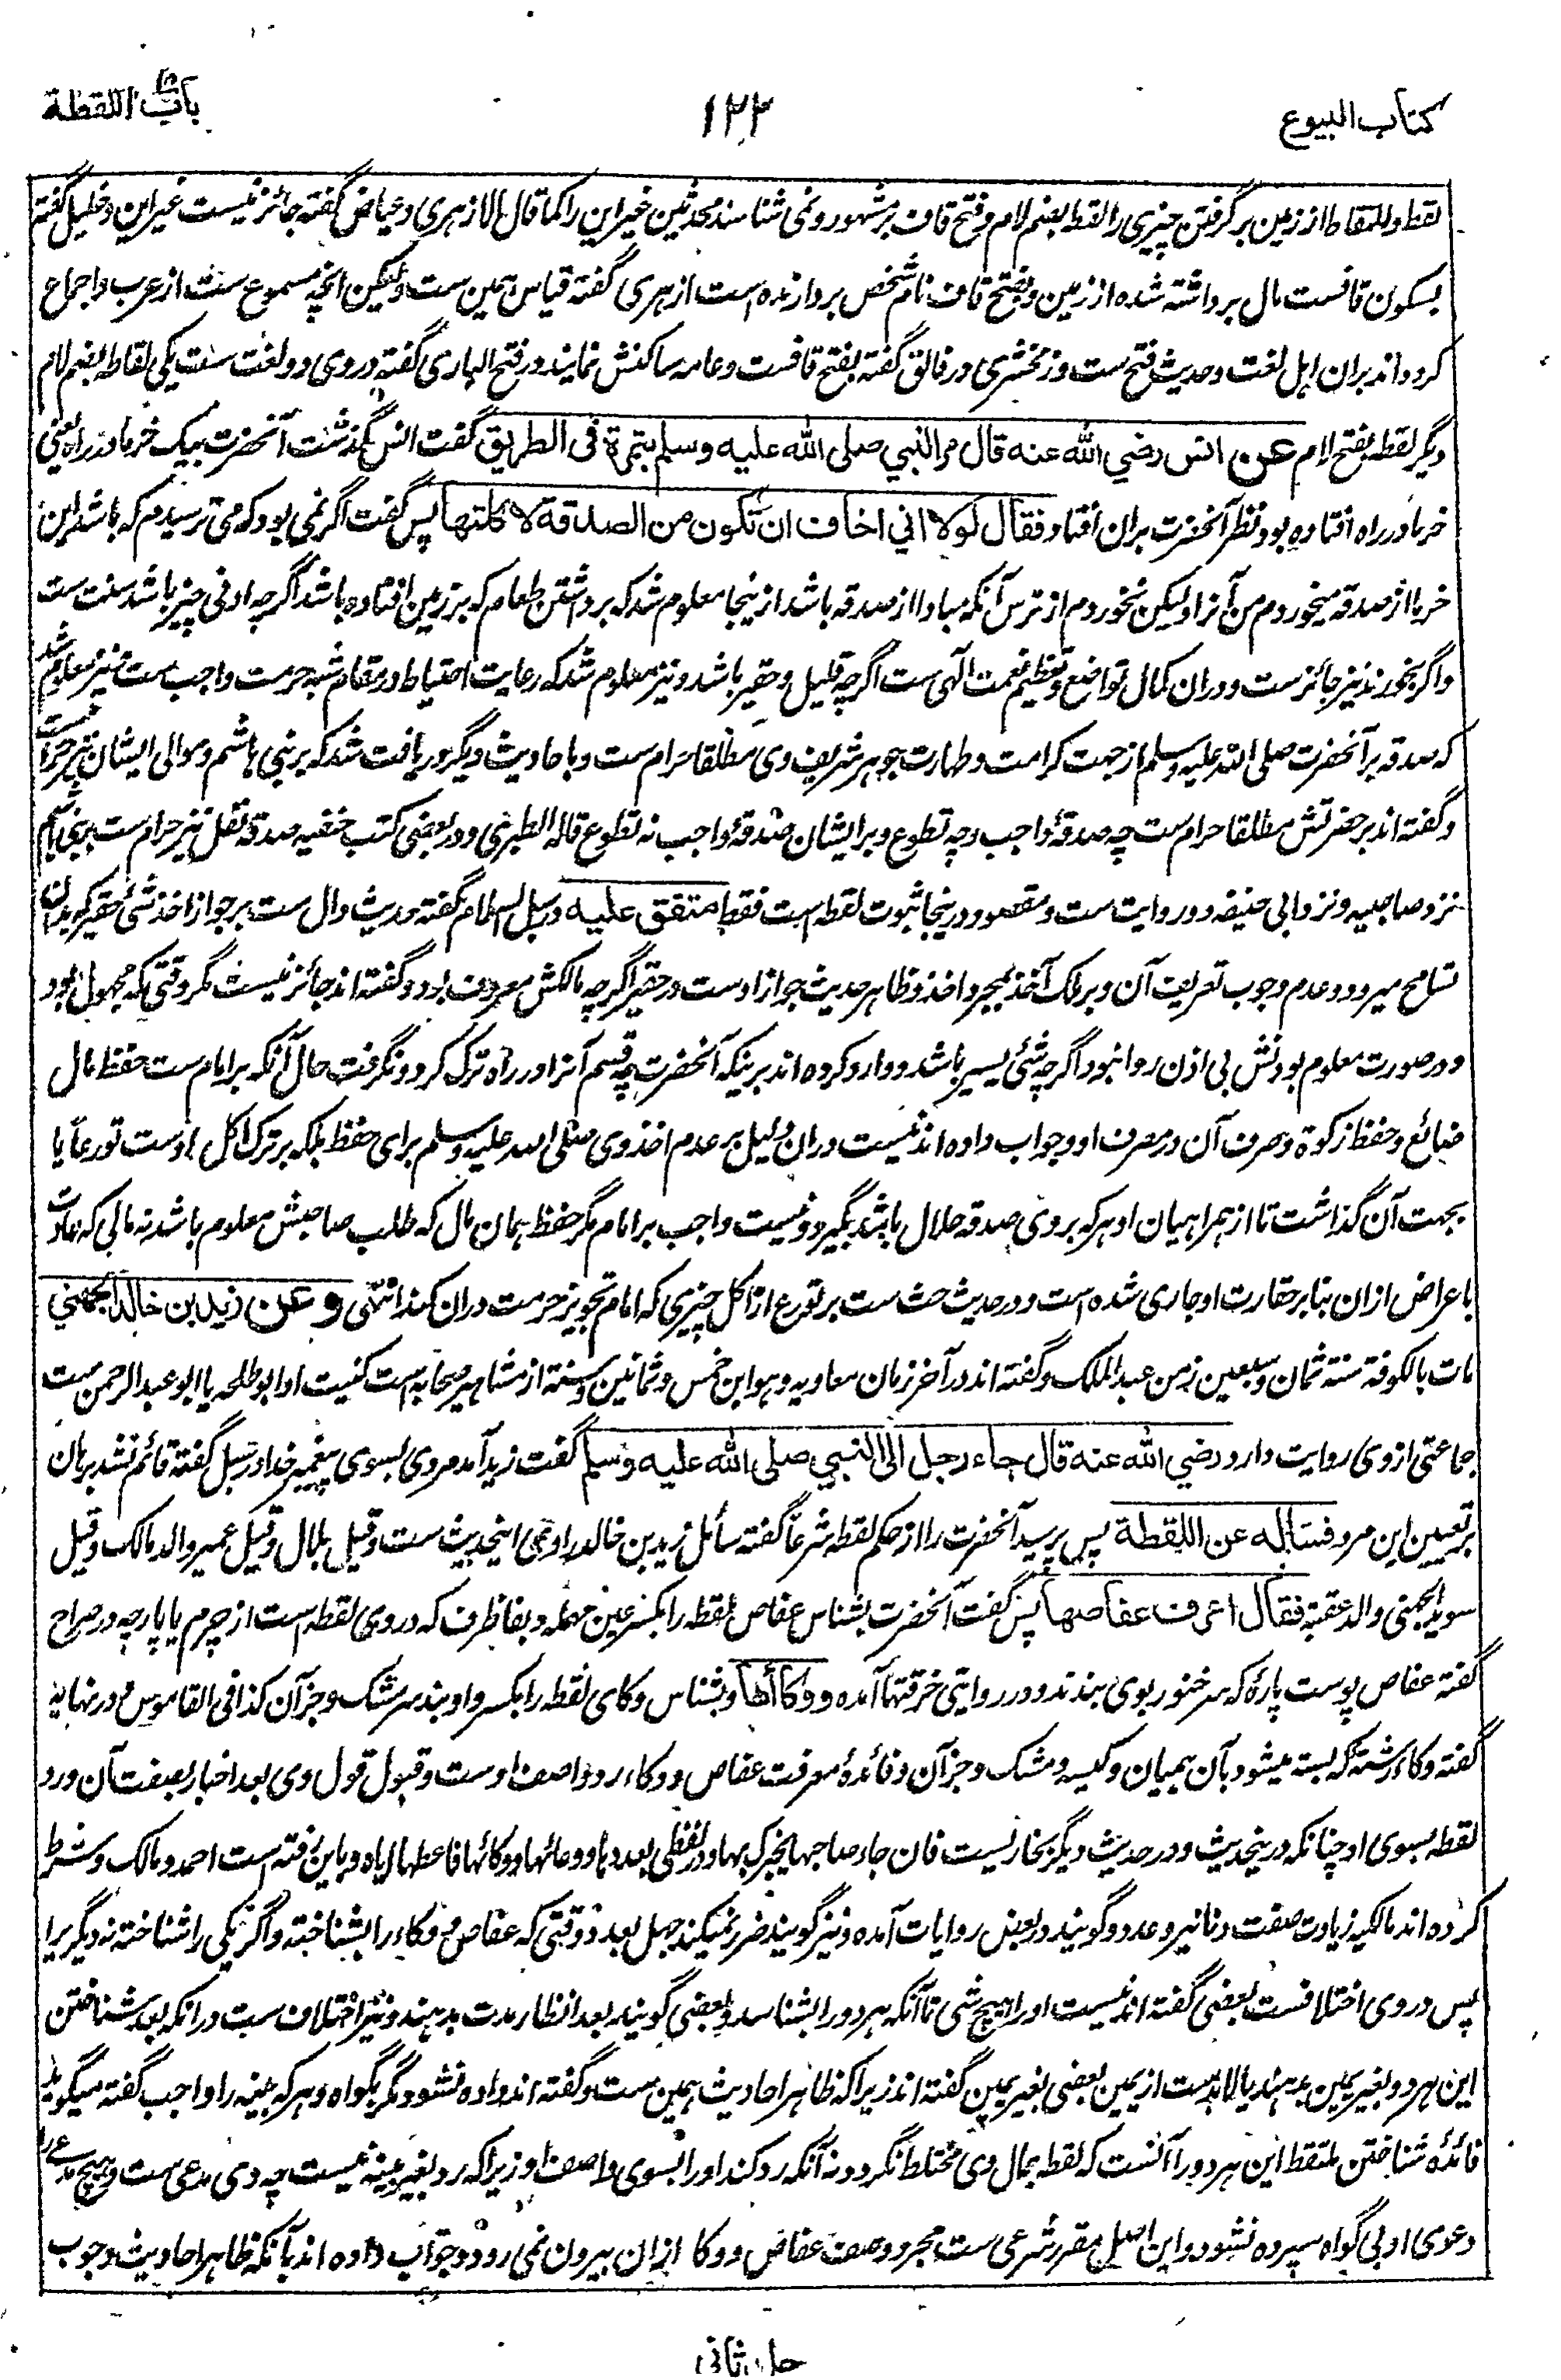 کتاب البیوع
۱۲۲
باب اللقطة
لقط و التقاط از زمین برگرفتن چیزی را لقطه بضم لام و فتح قاف بر مشهور و نمی شناسند محدثین غیر این را کما قال الازهری و عیاض گفته جائز نیست غیر این و خلیل گفته
بسکون قافست مال برداشته شده از زمین و بفتح قاف نام شخص بردارنده است ازهری گفته قیاس همین ست ولیکن آنچه مسموع ست از عرب و اجماع
کرده اند بران اهل لغت و حدیث فتح ست و زمخشری در فائق گفته بفتح قافست و عامه ساکنش نمایند و در فتح الباری گفته در وی دو لغت ست یکی لقاطه بضم لام
دیگر لقطه بفتح لام عن انس رضي الله عنه قال مر النبي صلى الله عليه وسلم بتمرة في الطريق گفت انس گذشت آنحضرت بیک خرما در راه یعنی
خرما در راه افتاده بود و نظر آنحضرت بران افتاد فقال لولا اني اخاف ان تكون من الصدقة لاكلتها پس گفت اگر نمی بود که می ترسیدم که باشد این
خرما از صدقه میخوردم من آنرا ولیکن نخوردم از ترس آنکه مبادا از صدقه باشد ازینجا معلوم شد که برداشتن طعام که بر زمین افتاده باشد اگرچه ادنی چیز باشد سنت ست
و اگر بخورند نیز جائزست و دران کمال تواضع و تعظیم نعمت الهی ست اگرچه قلیل و حقیر باشد و نیز معلوم شد که رعایت احتیاط در مقام شبه حرمت واجب ست و نیز معلوم شد
که صدقه بر آنحضرت صلی الله علیه وسلم از جهت کرامت و طهارت جوهر شریف وی مطلقا حرام ست و باحادیث دیگر دریافت شد که بر بنی هاشم و موالی ایشان نیز حرام ست
و گفته اند بر حضرتش مطلقا حرام ست چه صدقهٔ واجب و چه تطوع و بر ایشان صدقهٔ واجب نه تطوع قاله الطبری و در بعضی کتب حنفیه صدقه نفل نیز حرام ست بر بنی هاشم
نزد صاحبیه و نزد ابی حنیفه دو روایت ست و مقصود درینجا ثبوت لقطه است فقط متفق عليه در سبل السلام گفته حدیث دال ست بر جواز اخذ شئ حقیر که بدان
تسامح میرود و عدم وجوب تعریف آن و بر ملک آخذ بمجرد اخذ و ظاهر حدیث جواز اوست در حقیر اگرچه مالکش معروف بود و گفته اند جائز نیست مگر وقتی که مجهول بود
و در صورت معلوم بودنش بی اذن روا نبود اگرچه شئی یسیر باشد و وارد کرده اند برینکه آنحضرت چه قسم آنرا در راه ترک کرد و نگرفت حال آنکه بر امام ست حفظ مال
ضائع و حفظ زکوة و صرف آن در مصرف او و جواب داده اند نیست دران دلیل بر عدم اخذ وی صلی الله علیه وسلم برای حفظ بلکه بر ترک اکل اوست تورعاً یا
بجهت آن گذاشت تا از همراهیان او هر که بر وی صدقه حلال باشد بگیرد و نیست واجب بر امام مگر حفظ همان مال که طلب صاحبش معلوم باشد نه مالی که عادت
باعراض ازان بنا بر حقارت او جاری شده است و در حدیث حث ست بر تورع از اکل چیزی که امام تجویز حرمت دران کند انتهی و عن زيد بن خالد الجهني
مات بالکوفة سنة ثمان و سبعین زمن عبد الملک و گفته اند در آخر زمان معاویه و هو ابن خمس و ثمانین سنة از مشاهیر صحابه است کنیت او ابو طلحه یا ابو عبد الرحمن ست
جماعتی از وی روایت دارد رضي الله عنه قال جاء رجل الى النبي صلى الله عليه وسلم گفت زید آمد مردی بسوی پیغمبر خدا در سبل گفته قائم نشد برهان
بر تعیین این مرد فسأله عن اللقطة پس پرسید آنحضرت را از حکم لقطه شرعاً گفته سائل زید بن خالد راوی اینحدیث ست و قیل بلال و قیل عمیر والد مالک و قیل
سوید الجهنی والد عقبة فقال اعرف عفاصها پس گفت آنحضرت بشناس عفاص لقطه را بکسر عین مهمله و بفا ظرف که در وی لقطه است از چرم یا پارچه و در صراح
گفته عفاص پوست پارهٔ که سر خنور بوی بندند و در روایتی خرقتها آمده ووكاءها و بشناس وکای لقطه را بکسر واو بند سر مشک و جز آن کذا فی القاموس و در نهایه
گفته وکاء رشتهٔ که بسته میشود بآن همیان و کیسه و مشک و جز آن و فائدهٔ معرفت عفاص و وکاء رد واصف اوست و قبول قول وی بعد اخبار بصفت آن و رد
لقطه بسوی او چنانکه درینحدیث و در حدیث دیگر بخاریست فان جاء صاحبها یخبرک بها و در لفظی بعددها ووعائها ووکائها فاعطها ایاه و باین رفته است احمد و مالک و شرط
کرده اند مالکیه زیادت صفت دنانیر و عدد و گویند در بعض روایات آمده و نیز گویند ضرر نمیکند جهل بعدد وقتی که عفاص و وکاء را بشناخته و اگر یکی را شناخته نه دیگر یرا
پس در وی اختلافست بعضی گفته اند نیست او را هیچ شی تا آنکه هر دو را بشناسد و بعضی گویند بعد انتظار مدت بدهند و نیز اختلاف ست در آنکه بعد شناختن
این هر دو بغیر یمین بدهند یا لابدست از یمین بعضی بغیر یمین گفته اند زیرا که ظاهر احادیث همین ست و گفته اند داده نشود مگر بگواه و هر که بینه را واجب گفته میگوید
فائدهٔ شناختن ملتقط این هر دو را آنست که لقطه بمال وی مختلط نگردد نه آنکه رد کند او را بسوی واصف او زیرا که رد بغیر بینه نیست چه وی مدعی ست و هیچ مدعی را
دعوی او بی گواه سپرده نشود و این اصل مقرر شرعی ست بمجرد وصف عفاص و وکا ازان بیرون نمی رود و جواب داده اند بآنکه ظاهر احادیث وجوب
جلد ثانی